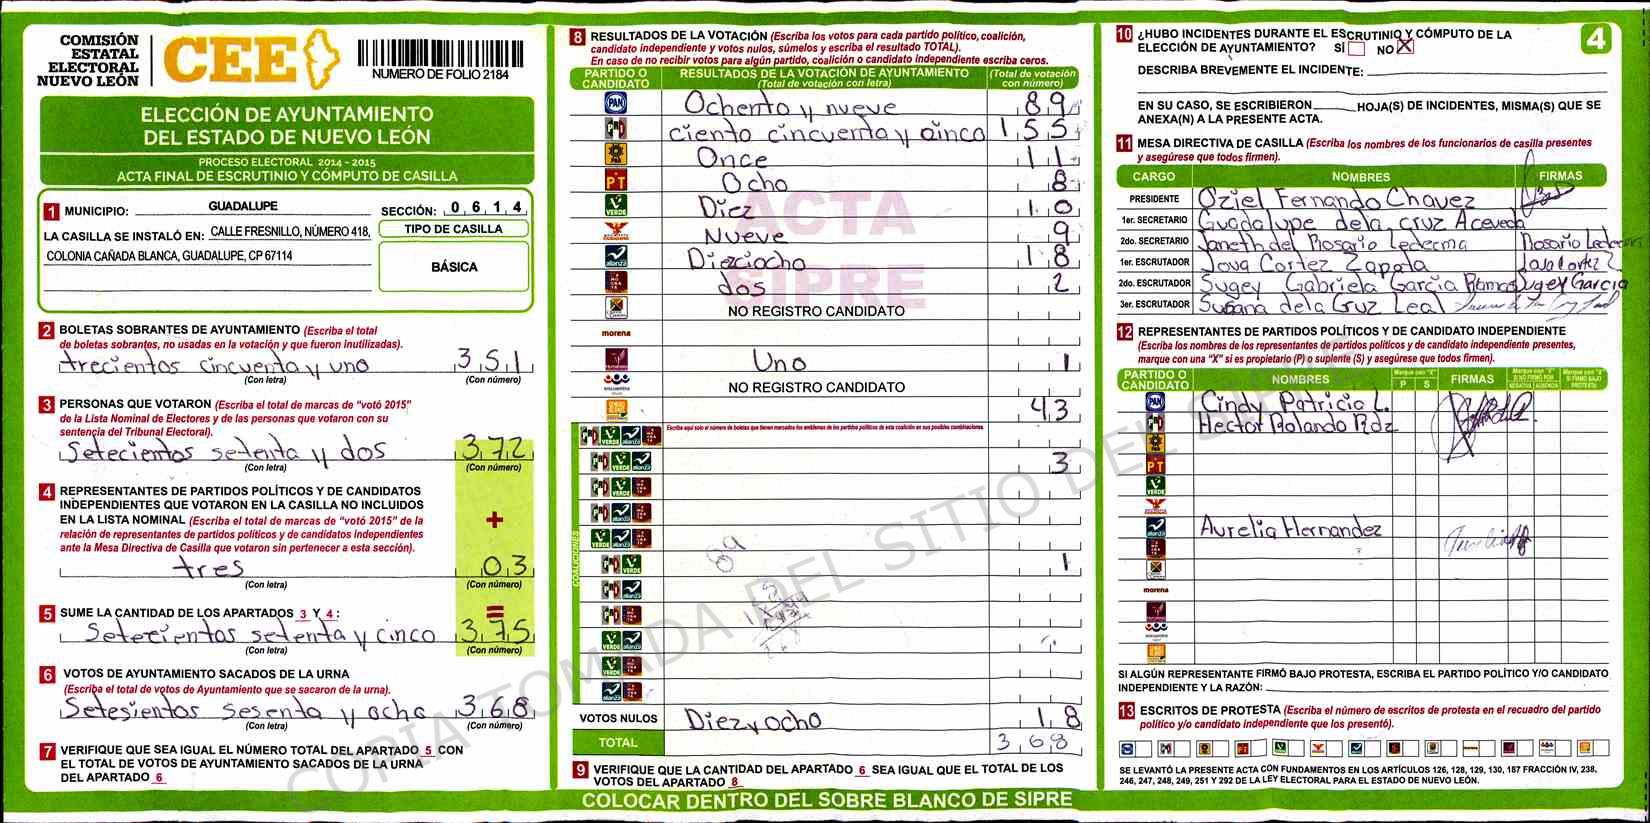 COMISIÓN
ESTATAL
ELECTORAL
NUEVO LEÓN
CEE
NUMERO DE FOLIO 2184
ELECCIÓN DE AYUNTAMIENTO
DEL ESTADO DE NUEVO LEÓN
PROCESO ELECTORAL 2014 - 2015
ACTA FINAL DE ESCRUTINIO Y CÓMPUTO DE CASILLA
1 MUNICIPIO: GUADALUPE SECCIÓN: 0 6 1 4
LA CASILLA SE INSTALÓ EN: CALLE FRESNILLO, NÚMERO 418,
COLONIA CAÑADA BLANCA, GUADALUPE, CP 67114
TIPO DE CASILLA
BÁSICA
2 BOLETAS SOBRANTES DE AYUNTAMIENTO (Escriba el total
de boletas sobrantes, no usadas en la votación y que fueron inutilizadas).
trecientos cincuenta y uno 351
(Con letra) (Con número)
3 PERSONAS QUE VOTARON (Escriba el total de marcas de "votó 2015"
de la Lista Nominal de Electores y de las personas que votaron con su
sentencia del Tribunal Electoral).
Setecientos setenta y dos 372
(Con letra) (Con número)
4 REPRESENTANTES DE PARTIDOS POLÍTICOS Y DE CANDIDATOS
INDEPENDIENTES QUE VOTARON EN LA CASILLA NO INCLUIDOS
EN LA LISTA NOMINAL (Escriba el total de marcas de "votó 2015" de la
relación de representantes de partidos políticos y de candidatos independientes
ante la Mesa Directiva de Casilla que votaron sin pertenecer a esta sección).
+
tres 03
(Con letra) (Con número)
5 SUME LA CANTIDAD DE LOS APARTADOS 3 Y 4 : =
Setecientos setenta y cinco 375
(Con letra) (Con número)
6 VOTOS DE AYUNTAMIENTO SACADOS DE LA URNA
(Escriba el total de votos de Ayuntamiento que se sacaron de la urna).
Setesientos sesenta y ocho 368
(Con letra) (Con número)
7 VERIFIQUE QUE SEA IGUAL EL NÚMERO TOTAL DEL APARTADO 5 CON
EL TOTAL DE VOTOS DE AYUNTAMIENTO SACADOS DE LA URNA
DEL APARTADO 6
8 RESULTADOS DE LA VOTACIÓN (Escriba los votos para cada partido político, coalición,
candidato independiente y votos nulos, súmelos y escriba el resultado TOTAL).
En caso de no recibir votos para algún partido, coalición o candidato independiente escriba ceros.
PARTIDO O CANDIDATO RESULTADOS DE LA VOTACIÓN DE AYUNTAMIENTO (Total de votación con letra) (Total de votación con número)
PAN Ochenta y nueve 89
PRD ciento cincuenta y cinco 155
Once 11
PT Ocho 8
VERDE Diez 10
Nueve 9
alianza Dieziocho 18
dos 2
NO REGISTRO CANDIDATO
morena
Uno 1
NO REGISTRO CANDIDATO
43
Escriba aquí solo el número de boletas que tienen marcados los emblemas de los partidos políticos de esta coalición en sus posibles combinaciones.
3
COALICIONES
89
1
VOTOS NULOS Diez y ocho 18
TOTAL 368
9 VERIFIQUE QUE LA CANTIDAD DEL APARTADO 6 SEA IGUAL QUE EL TOTAL DE LOS
VOTOS DEL APARTADO 8
COLOCAR DENTRO DEL SOBRE BLANCO DE SIPRE
ACTA
SIPRE
COPIA TOMADA DEL SITIO DEL SIPRE
10 ¿HUBO INCIDENTES DURANTE EL ESCRUTINIO Y CÓMPUTO DE LA
ELECCIÓN DE AYUNTAMIENTO? SÍ NO X
4
DESCRIBA BREVEMENTE EL INCIDENTE:
EN SU CASO, SE ESCRIBIERON HOJA(S) DE INCIDENTES, MISMA(S) QUE SE
ANEXA(N) A LA PRESENTE ACTA.
11 MESA DIRECTIVA DE CASILLA (Escriba los nombres de los funcionarios de casilla presentes
y asegúrese que todos firmen).
CARGO NOMBRES FIRMAS
PRESIDENTE Oziel Fernando Chavez
1er. SECRETARIO Guadalupe dela cruz Acevedo
2do. SECRETARIO Janeth del Rosario Ledecma Rosario Ledecma
1er. ESCRUTADOR Jova Cortez Zapata Jova Cortez Z
2do. ESCRUTADOR Sugey Gabriela García Ramos Sugey Garcia
3er. ESCRUTADOR Susana dela Cruz Leal
12 REPRESENTANTES DE PARTIDOS POLÍTICOS Y DE CANDIDATO INDEPENDIENTE
(Escriba los nombres de los representantes de partidos políticos y de candidato independiente presentes,
marque con una "X" si es propietario (P) o suplente (S) y asegúrese que todos firmen).
PARTIDO O CANDIDATO NOMBRES Marque con "X" P S FIRMAS Marque con "X" SI NO FIRMÓ POR NEGATIVA AUSENCIA Marque con "X" SI FIRMÓ BAJO PROTESTA
PAN Cindy Patricia L.
Hector Rolando Rdz
PT
VERDE
alianza Aurelia Hernandez
morena
SI ALGÚN REPRESENTANTE FIRMÓ BAJO PROTESTA, ESCRIBA EL PARTIDO POLÍTICO Y/O CANDIDATO
INDEPENDIENTE Y LA RAZÓN:
13 ESCRITOS DE PROTESTA (Escriba el número de escritos de protesta en el recuadro del partido
político y/o candidato independiente que los presentó).
SE LEVANTÓ LA PRESENTE ACTA CON FUNDAMENTOS EN LOS ARTÍCULOS 126, 128, 129, 130, 187 FRACCIÓN IV, 238,
246, 247, 248, 249, 251 Y 292 DE LA LEY ELECTORAL PARA EL ESTADO DE NUEVO LEÓN.